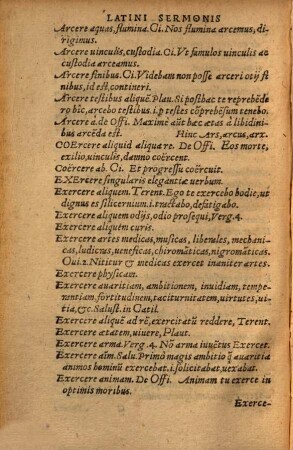 LATINI SERMONIS
Arcere aquas, flumina. Ci. Nos flumina arcemus, di-
rigimus.
Arcere uinculis, custodia. Ci. Vt famulos uinculis ac
custodia arceamus.
Arcere finibus. Ci. Videbam non posse arceri otij fi
nibus, id est, contineri.
Arcere testibus aliquē. Plau. Si posthac te reprehēde
ro hîc, arcebo testibus .i. p testes cōprebēsum tenebo.
Arcere à. de Offi. Maximè aūt hæc ætas à libidini
bus arcēda est. Hinc Ars, arcus, arx.
COErcere aliquid aliqua re. De Offi. Eos morte,
exilio, uinculis, damno coërcent.
Coërcere ab. Ci. Et progressu coërcuit.
EXErcere singularis elegantiæ uerbum.
Exercere aliquem. Terent. Ego te exercebo hodie, ut
dignus es silicernium .i. tractabo, defatigabo.
Exercere aliquem odijs, odio prosequi, Verg. 4.
Exercere aliquē curis.
Exercere artes medicas, musicas, liberales, mechani-
cas, ludicras, ueneficas, chiromāticas, nigromāticas.
Oui. 2. Nititur & medicas exercet inaniter artes.
Exercere physicam.
Exercere auaritiam, ambitionem, inuidiam, tempe-
rantiam, fortitudinem, taciturnitatem, uirtutes, ui-
tia, &c. Salust. in Catil.
Exercere aliquē ad rē, exercitatū reddere, Terent.
Exercere ætatem, uiuere, Plaut.
Exercere arma. Verg. 4. Nō arma iuuētus Exercet.
Exercere aīm. Salu. Primò magis ambitio q̄ auaritia
animos hominū exercebat .i. solicitabat, uexabat.
Exercere animam. De Offi. Animam tu exerce in
optimis moribus.
Exerce-